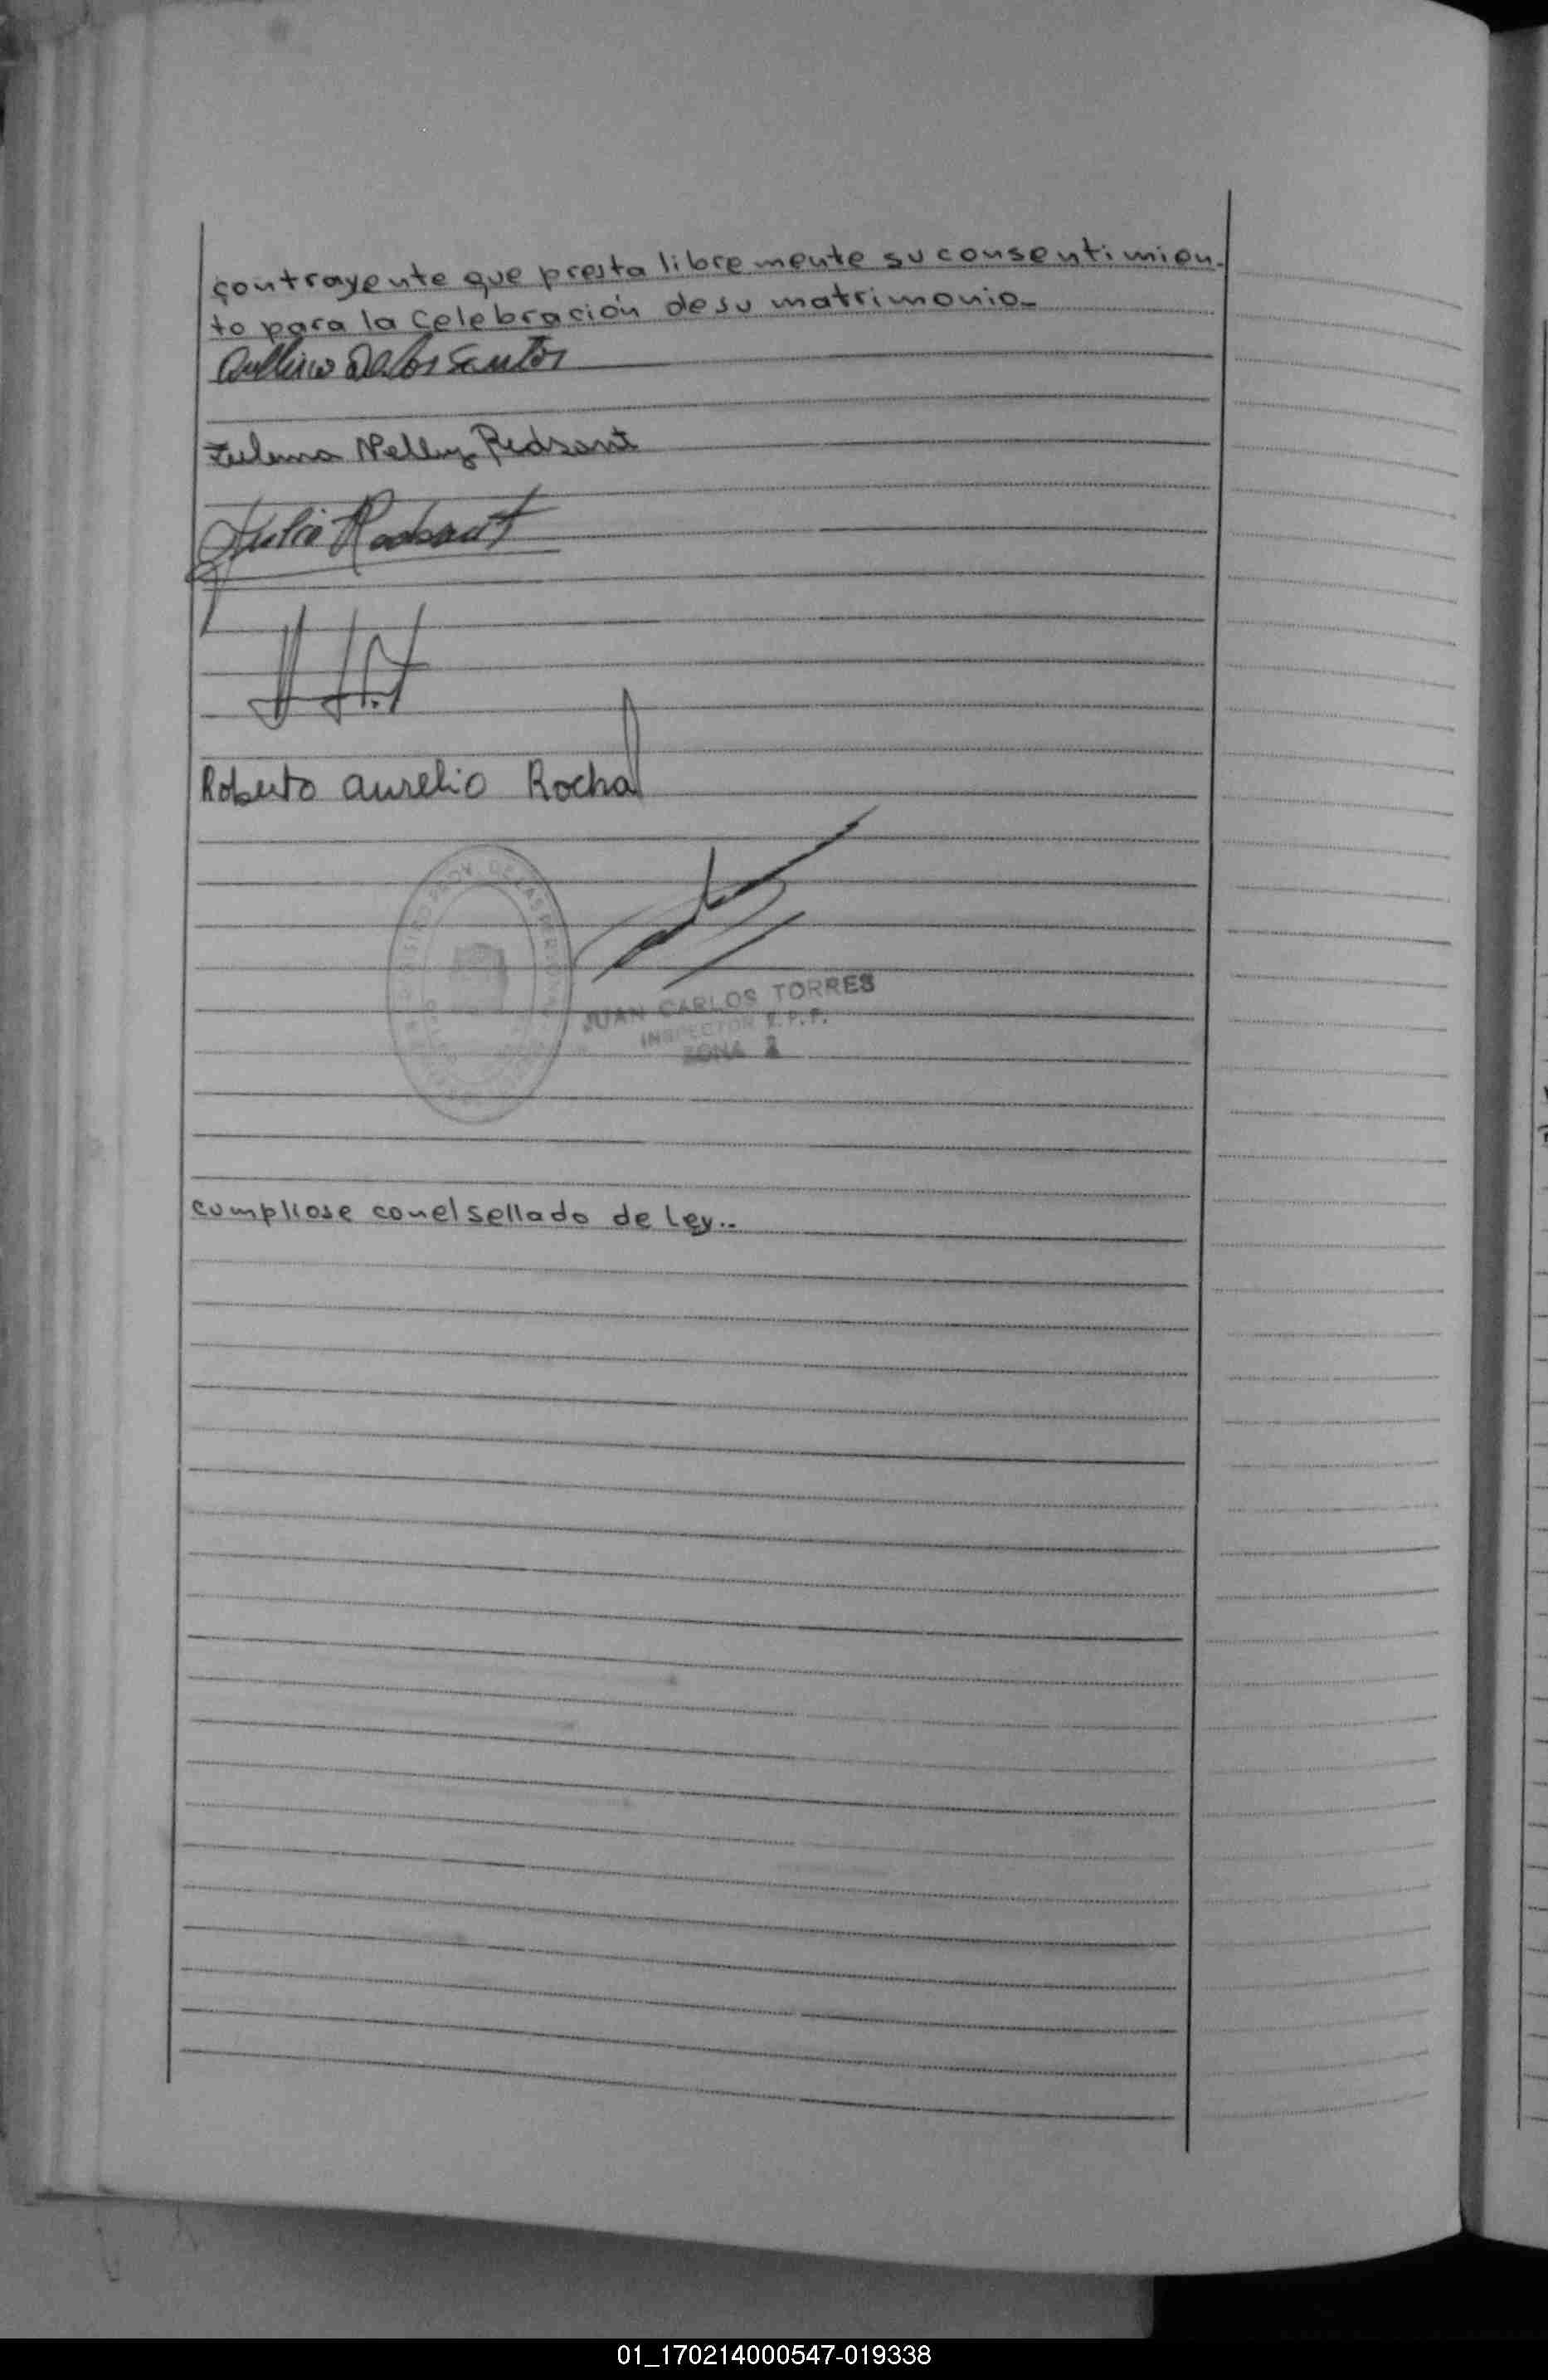 contrayente que presta libremente su consentimien-
to para la celebración de su matrimonio_
De los Santos
Zulema Nelly
Julio
Roberto Aurelio Rocha
JUAN CARLOS TORRES
INSPECTOR
ZONA
cumpliose con el sellado de Ley..
01_170214000547-019338